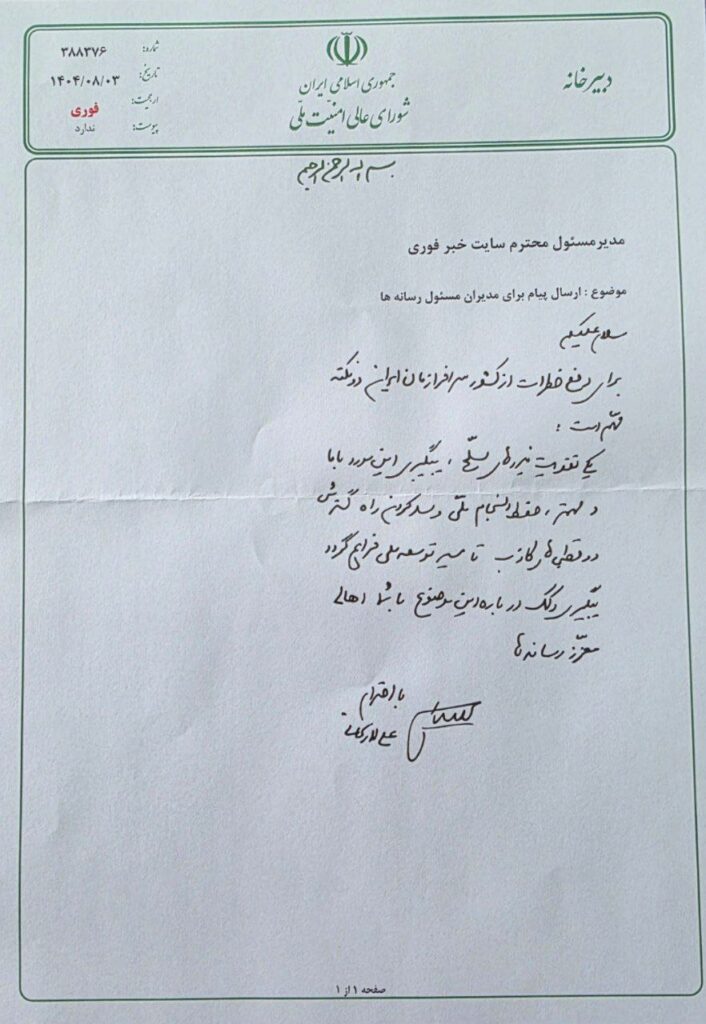 دبیرخانه
جمهوری اسلامی ایران
شورای عالی امنیت ملّی
شماره: ۳۸۸۳۷۶
تاریخ: ۱۴۰۴/۰۸/۰۳
ارجحیت: فوری
پیوست: ندارد
بسم الله الرحمن الرحیم
مدیرمسئول محترم سایت خبر فوری
موضوع : ارسال پیام برای مدیران مسئول رسانه ها
سلام علیکم
برای رفع خطرات از کشور سرافرازمان ایران دو نکته
مهّم است :
یکی تقویت نیروهای مسلّح ، پیگیری این مورد با ما
و مهمتر ، حفظ انسجام ملّی و سد کردن راه گسترش
دوقطبی‌های کاذب تا مسیر توسعه ملی فراهم گردد
پیگیری و کمک درباره این موضوع با شما اهالی
معزّز رسانه‌ها
با احترام
علی لاریجانی
صفحه ۱ از ۱